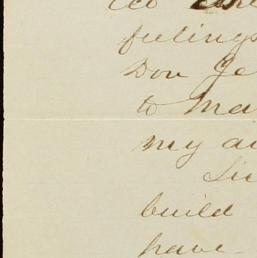 feelings
Don Ge
to Ma
my a
build
have